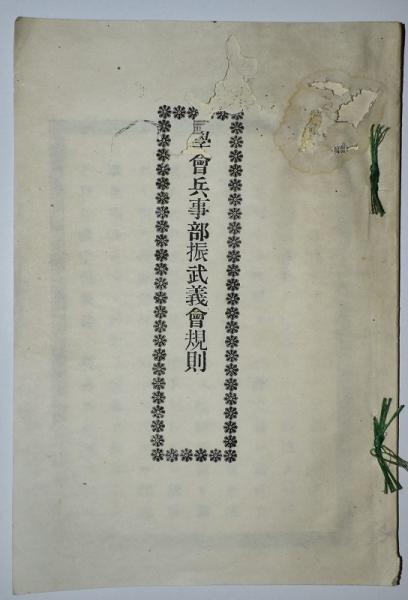 學會兵事部振武義會規則